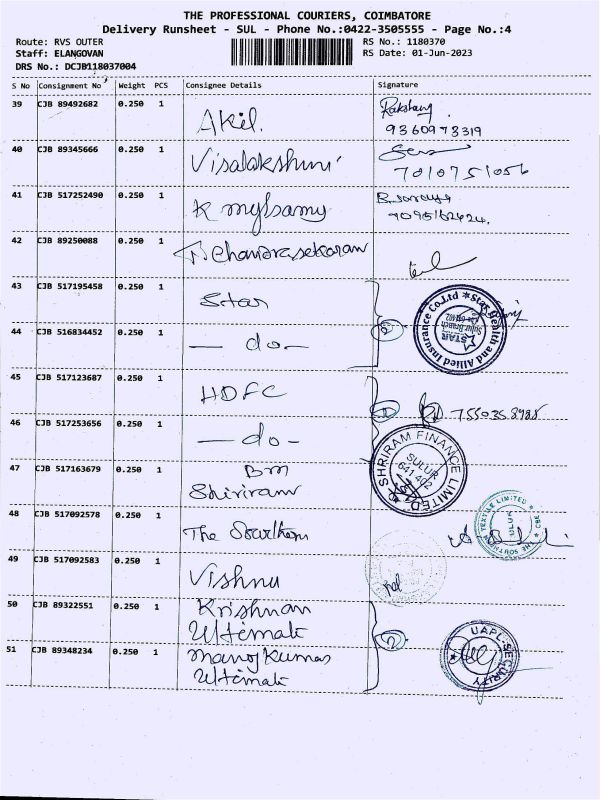 THE PROFESSIONAL COURIERS, COIMBATORE
Delivery Runsheet - SUL - Phone No.:0422-3505555 - Page No.:4
Route: RVS OUTER RS No.: 1180370
Staff: ELANGOVAN RS Date: 01-Jun-2023
DRS No.: DCJB118037004
S No Consignment No Weight PCS Consignee Details Signature
39 CJB 89492682 0.250 1 Akil.
9360973319
40 CJB 89345666 0.250 1 Visalakshmi
7010751056
41 CJB 517252490 0.250 1 K mylsamy
9095162424.
42 CJB 89250088 0.250 1 Chandrasekaran
43 CJB 517195458 0.250 1 Star
Star Health and Allied Insurance Co.Ltd
STAR
Sulur Branch
44 CJB 516834452 0.250 1 — do —
45 CJB 517123687 0.250 1 HDFC
7550358988
46 CJB 517253656 0.250 1 — do -
47 CJB 517163679 0.250 1 BM
Shriram
SHRIRAM FINANCE LIMITED
SULUR
641 402
48 CJB 517092578 0.250 1 The Southern
49 CJB 517092583 0.250 1 Vishnu
50 CJB 89322551 0.250 1 Krishnan
Ultimate
51 CJB 89348234 0.250 1 Manoj Kumar
Ultimate
UAPL SECURITY